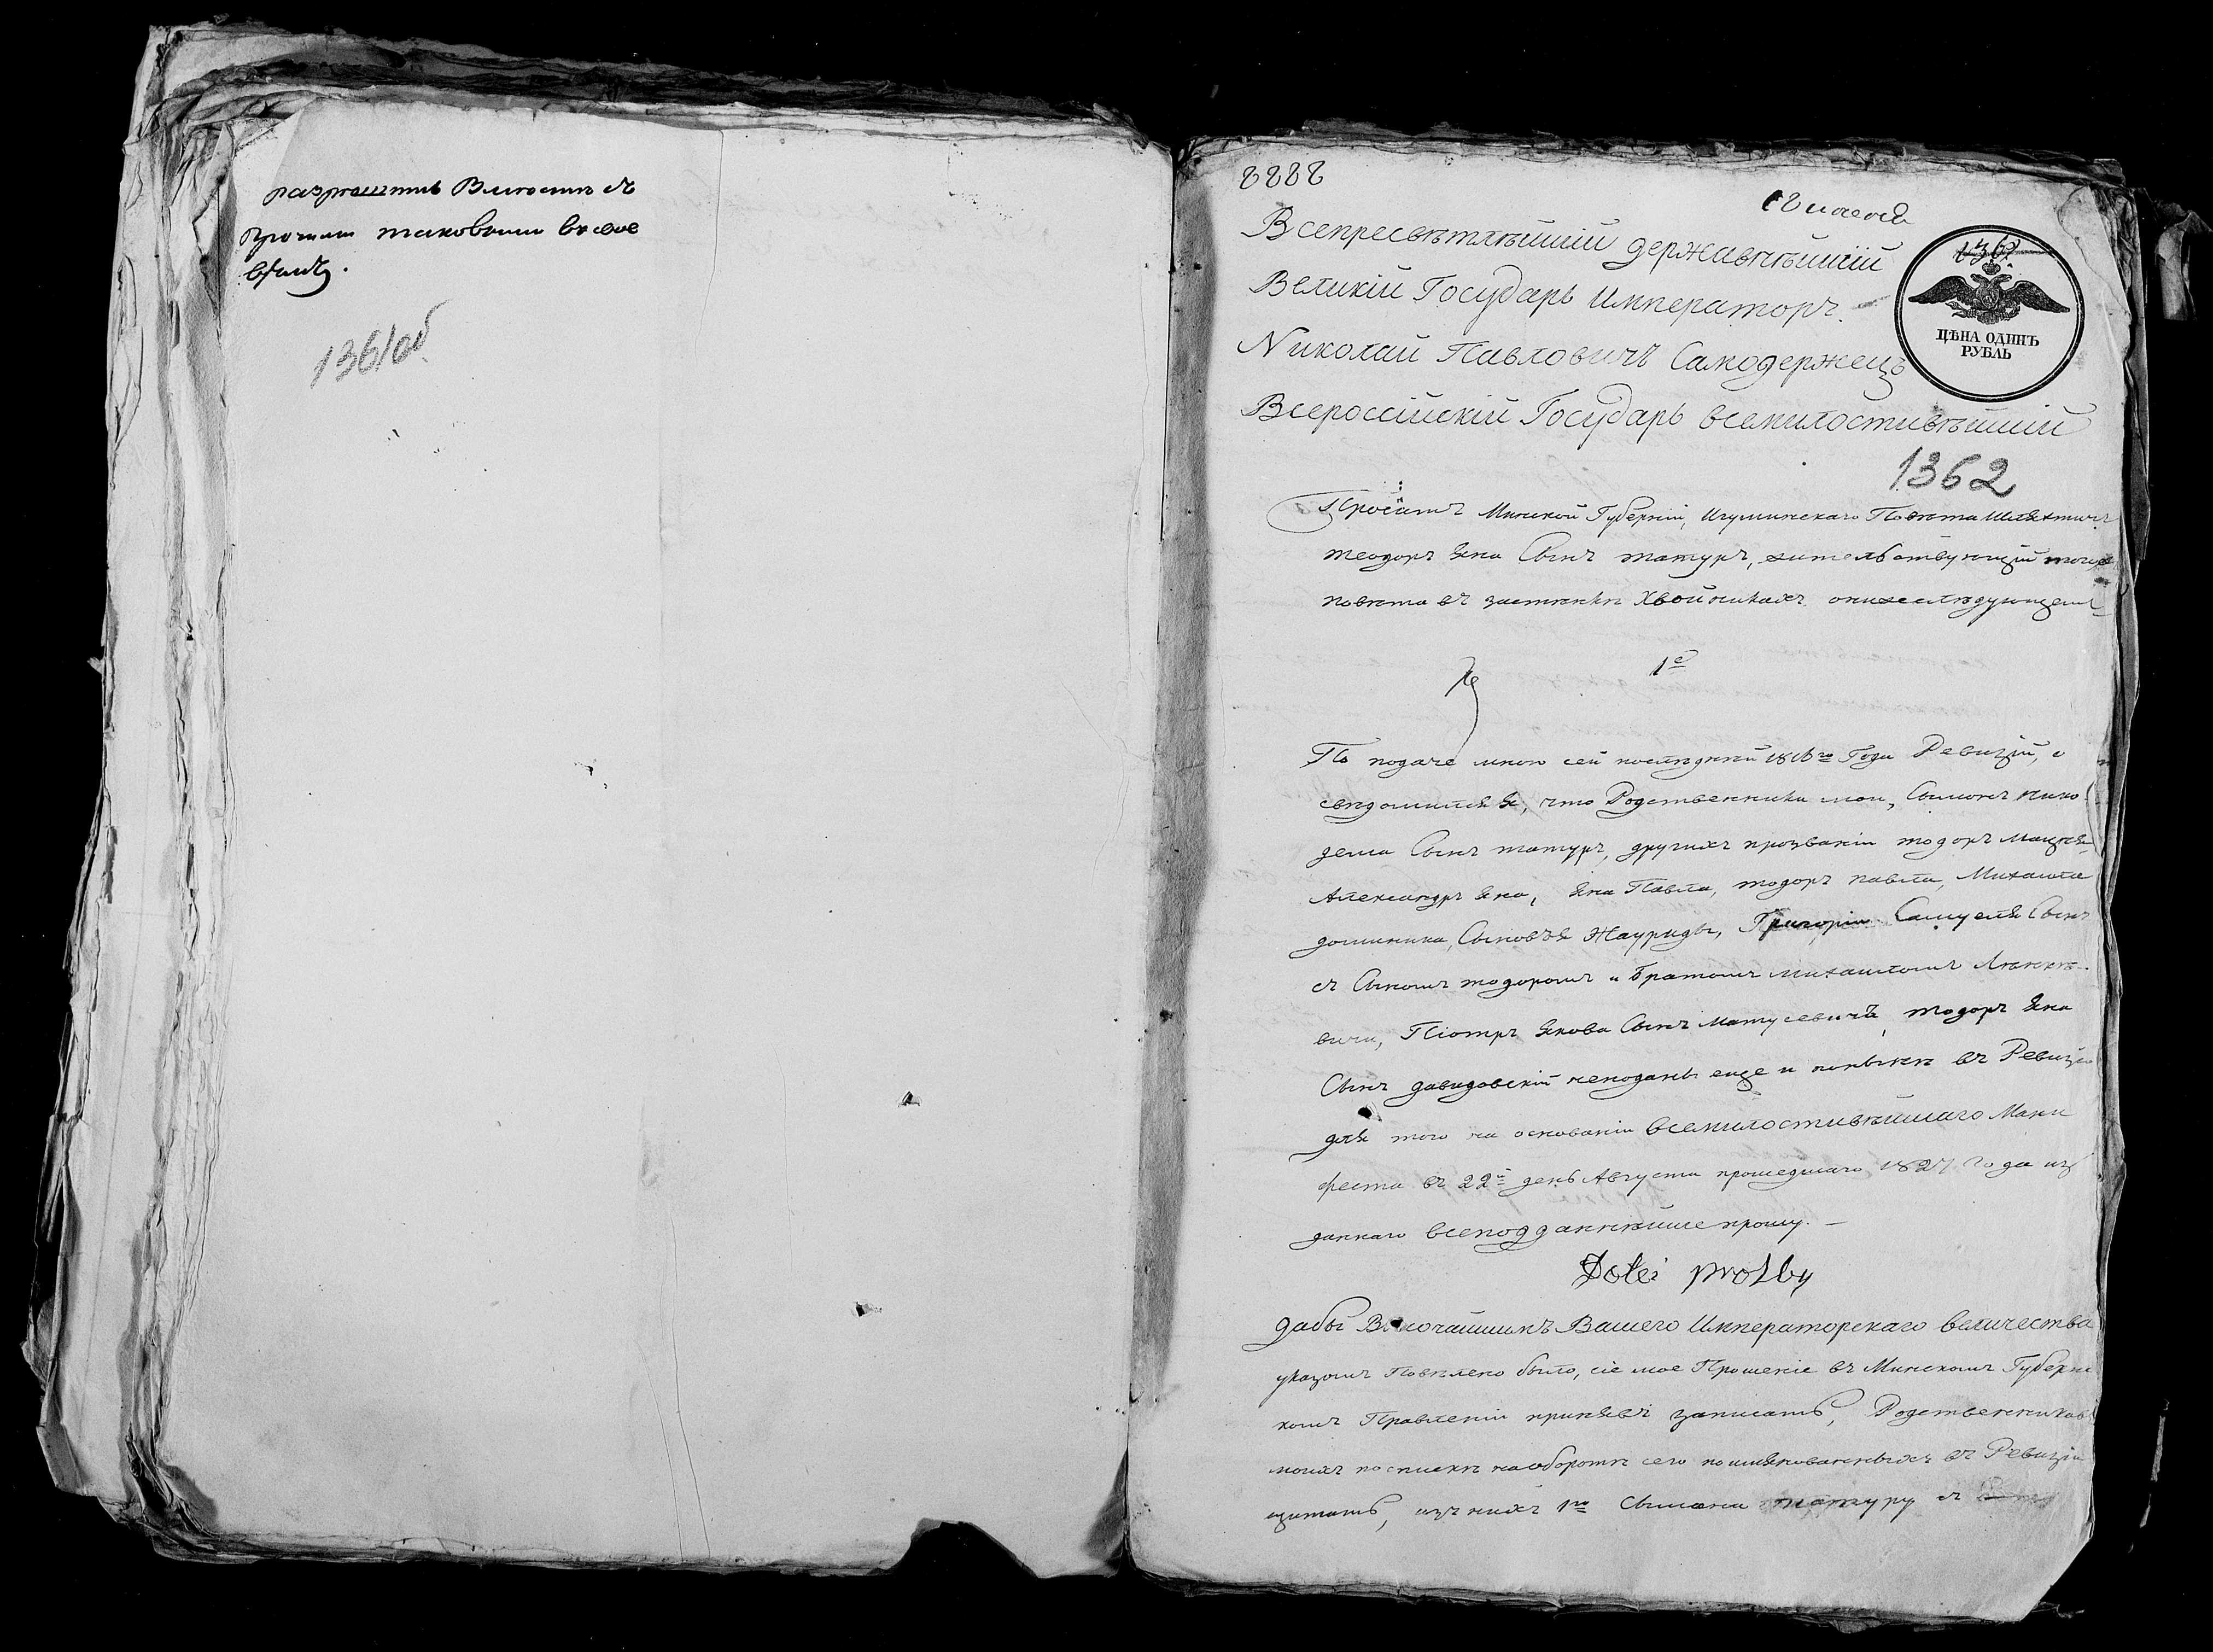 разрешить Вместѣ съ
Прочими таковыми
1361об
8888
1362
ЦѢНА ОДИНЪ
РУБЛЬ
Всепресвѣтлѣйшій державнѣйшій
Великій Государь Императоръ
Николай Павловичъ Самодержецъ
Всероссійскій Государь всемилостивѣйшій
1362
Проситъ Минской Губерніи, Игуминскаго Повѣта Шляхтичъ
теодоръ Яна Сынъ татуръ, жительствующій тогоже
повѣта въ застѣнкѣ Хвойникахъ онижеслѣдующемъ
1е
По подаче мною сей послѣдней 1816го Года Ревизіи, о
свѣдомился Я, что Родственники мои, Сымонъ Нико
дема Сынъ татуръ, другихъ прозваніи тодоръ Мацѣя
Александръ Яна, Яна Павла, тодоръ павла, Михаила
доминика, Сыновья Жауриды, Григорій Самуеля Сынъ
съ Сыномъ тодоромъ и Братомъ михаиломъ
вичи, Піотръ Якова Сынъ Матусевича, тодоръ Яна
Сынъ давидовскій неподаны еще и понынѣ въ Ревизію
для того на основаніи всемилостивѣйшаго Мани
феста въ 22й день Августа прошедшаго 1827 Года из
даннаго всеподданнѣйше прошу. —
Dołei prozby
дабы Высочайшимъ Вашего Императорскаго величества
указомъ Повѣлено было, сіе мое Прошеніе въ Минскомъ Губернс
комъ Правленіи принявъ записать, Родственниковъ
моихъ посписку наоборотѣ сего поимянованныхъ въ Ревизіи
щитать, изъ нихъ 1го Сымана татуру съ